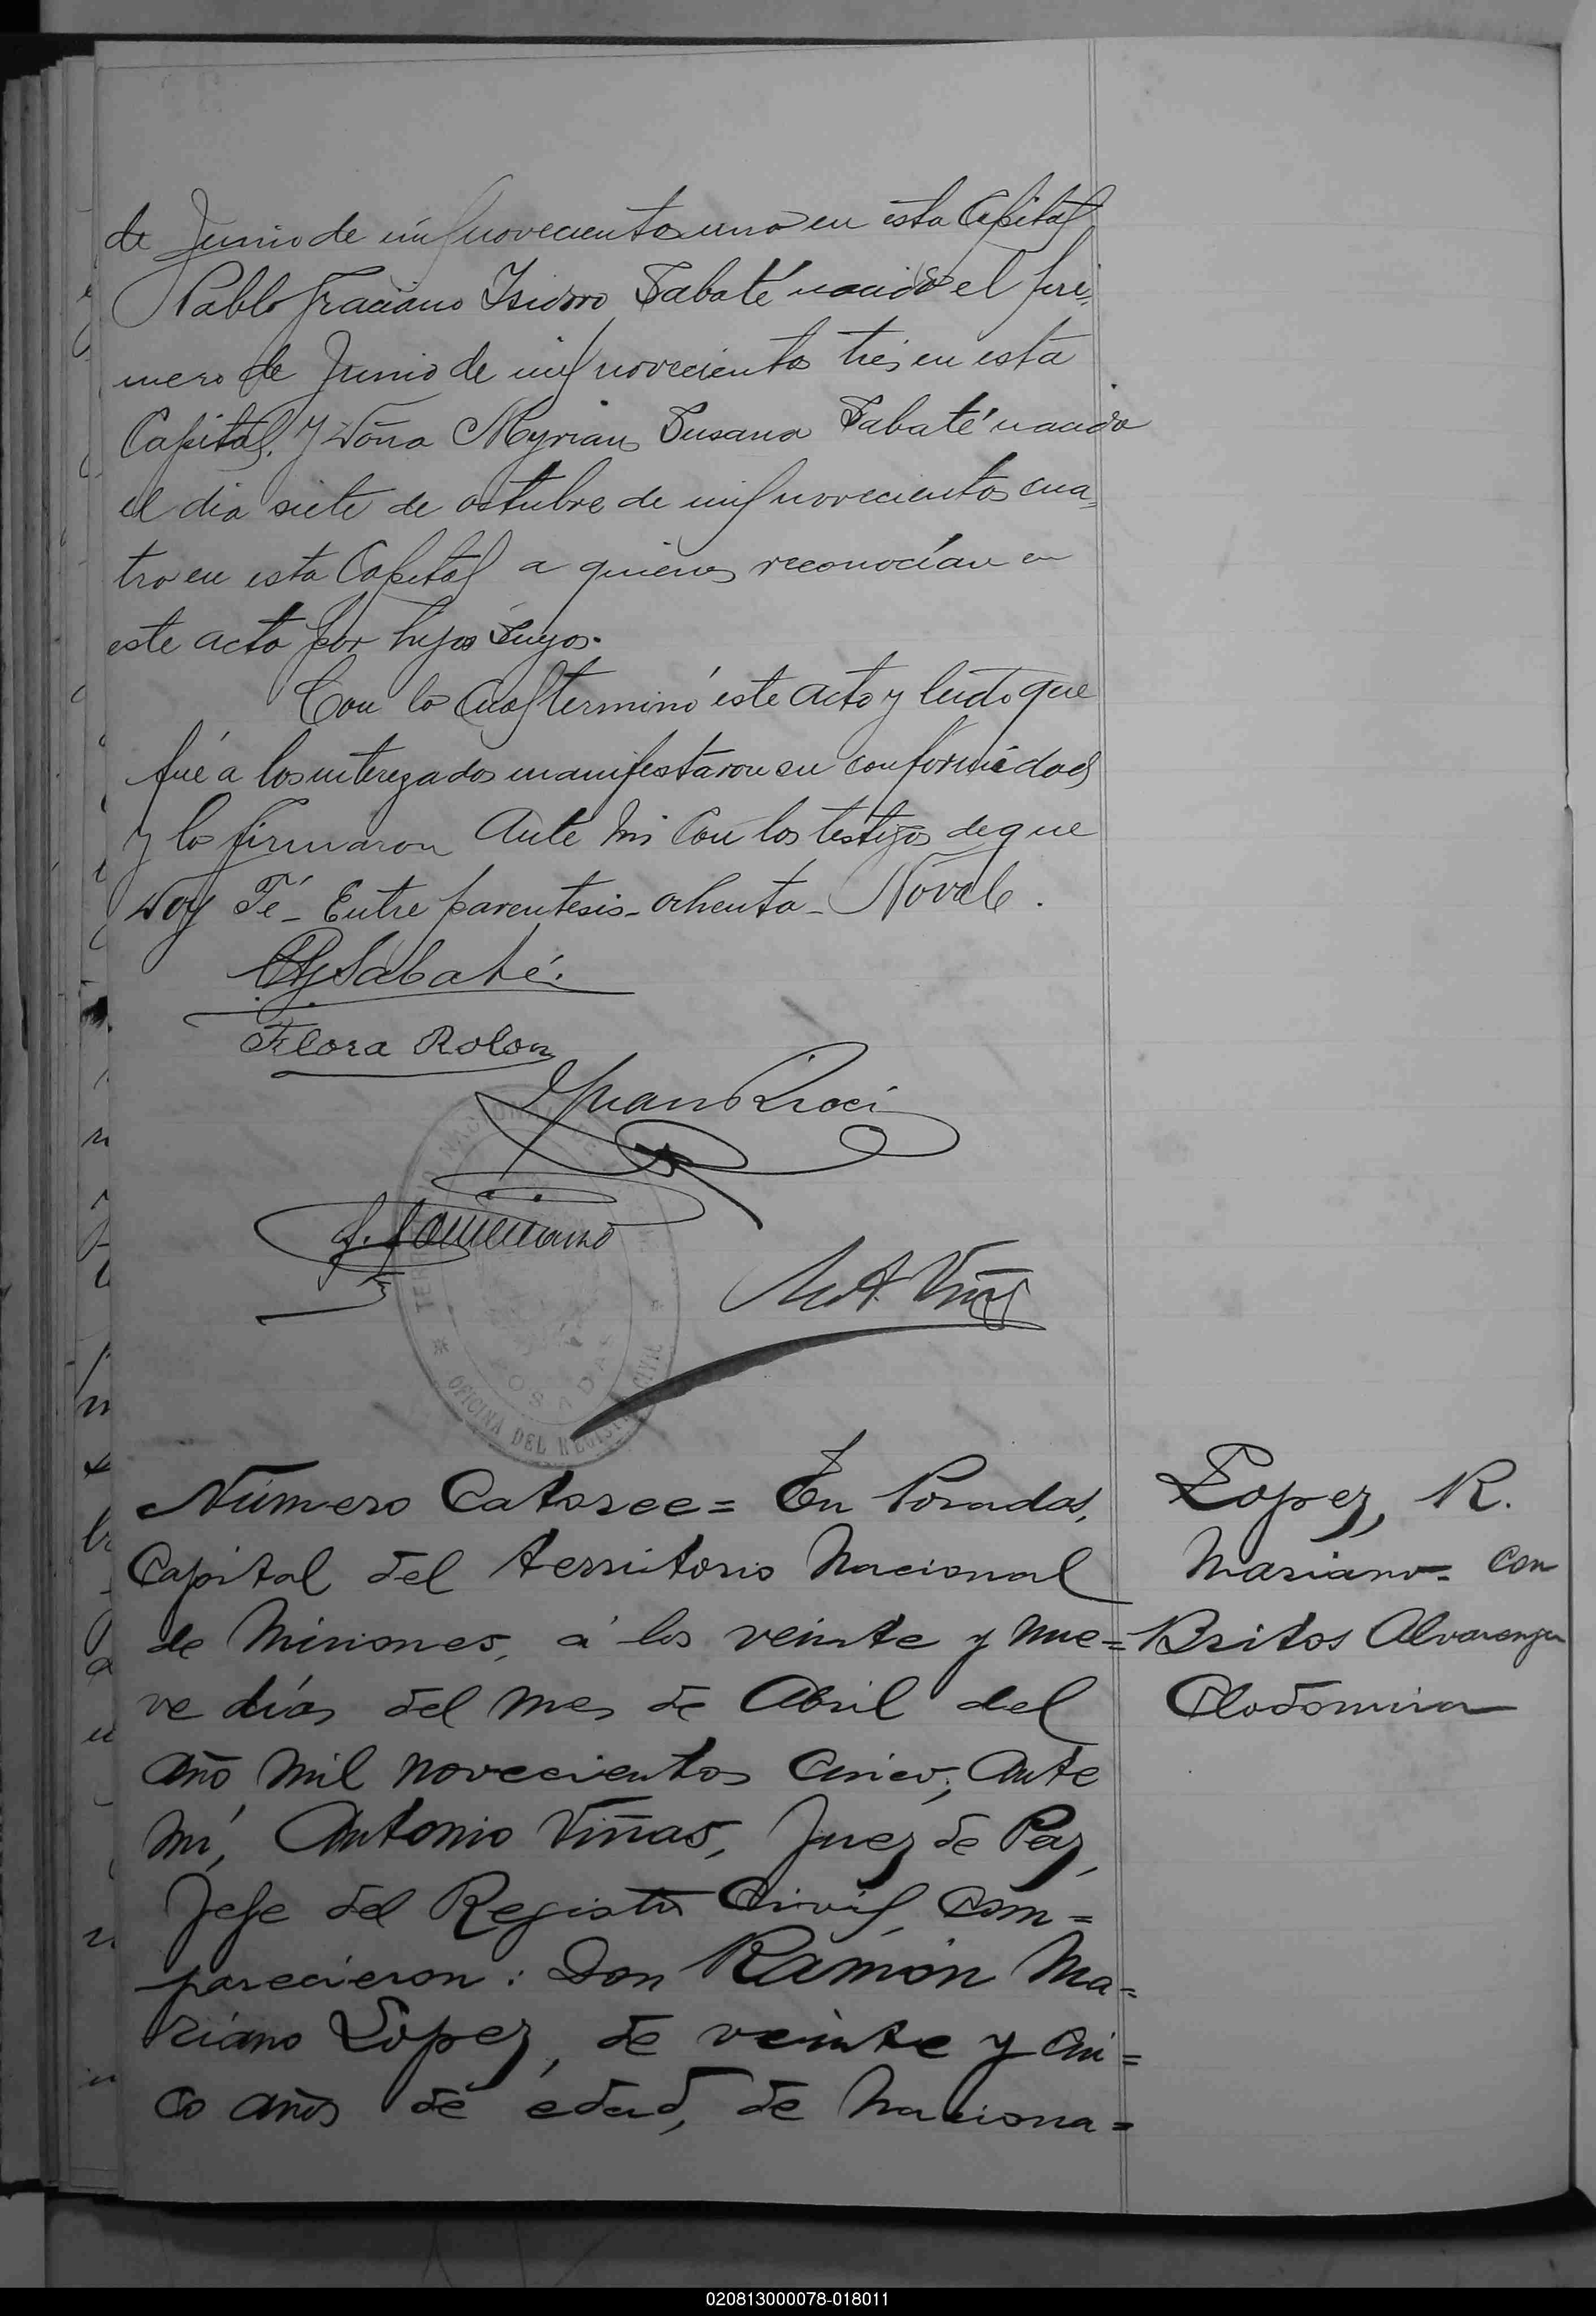 de Junio de mil novecientos uno en esta Capital
Pablo Graciano Isidoro Sabaté nacido el pri-
mero de Junio de mil novecientos tres en esta
Capital. Y Doña Myrian Susana Sabaté nacida
el dia siete de octubre de mil novecientos cua-
tro en esta Capital a quienes reconocían en
este acto por hijos suyos.
Con lo cual terminó este acto y leido que
fué a los interezados manifestaron su conformidad
y lo firmaron Ante mi Con los testigos de que
Doy Fé - Entre parentesis - ochenta - No vale.
Sabaté.
Flora Rolon
Juan
M A. Viñas
OFICINA DEL REGISTRO CIVIL
POSADAS
Número Catorce = En Posadas,
Capital del territorio Nacional
de Misiones, á los veinte y nue=
ve días del mes de Abril del
año mil novecientos cinco, ante
mí, Antonio Viñas, Juez de Paz,
Jefe del Registro Civil, com=
parecieron: Don Ramón Ma=
riano Lopez, de veinte y cin=
co años de edad, de naciona=
Lopez, R.
Mariano = con
Britos Alvarenga
Clodomira
020813000078-018011